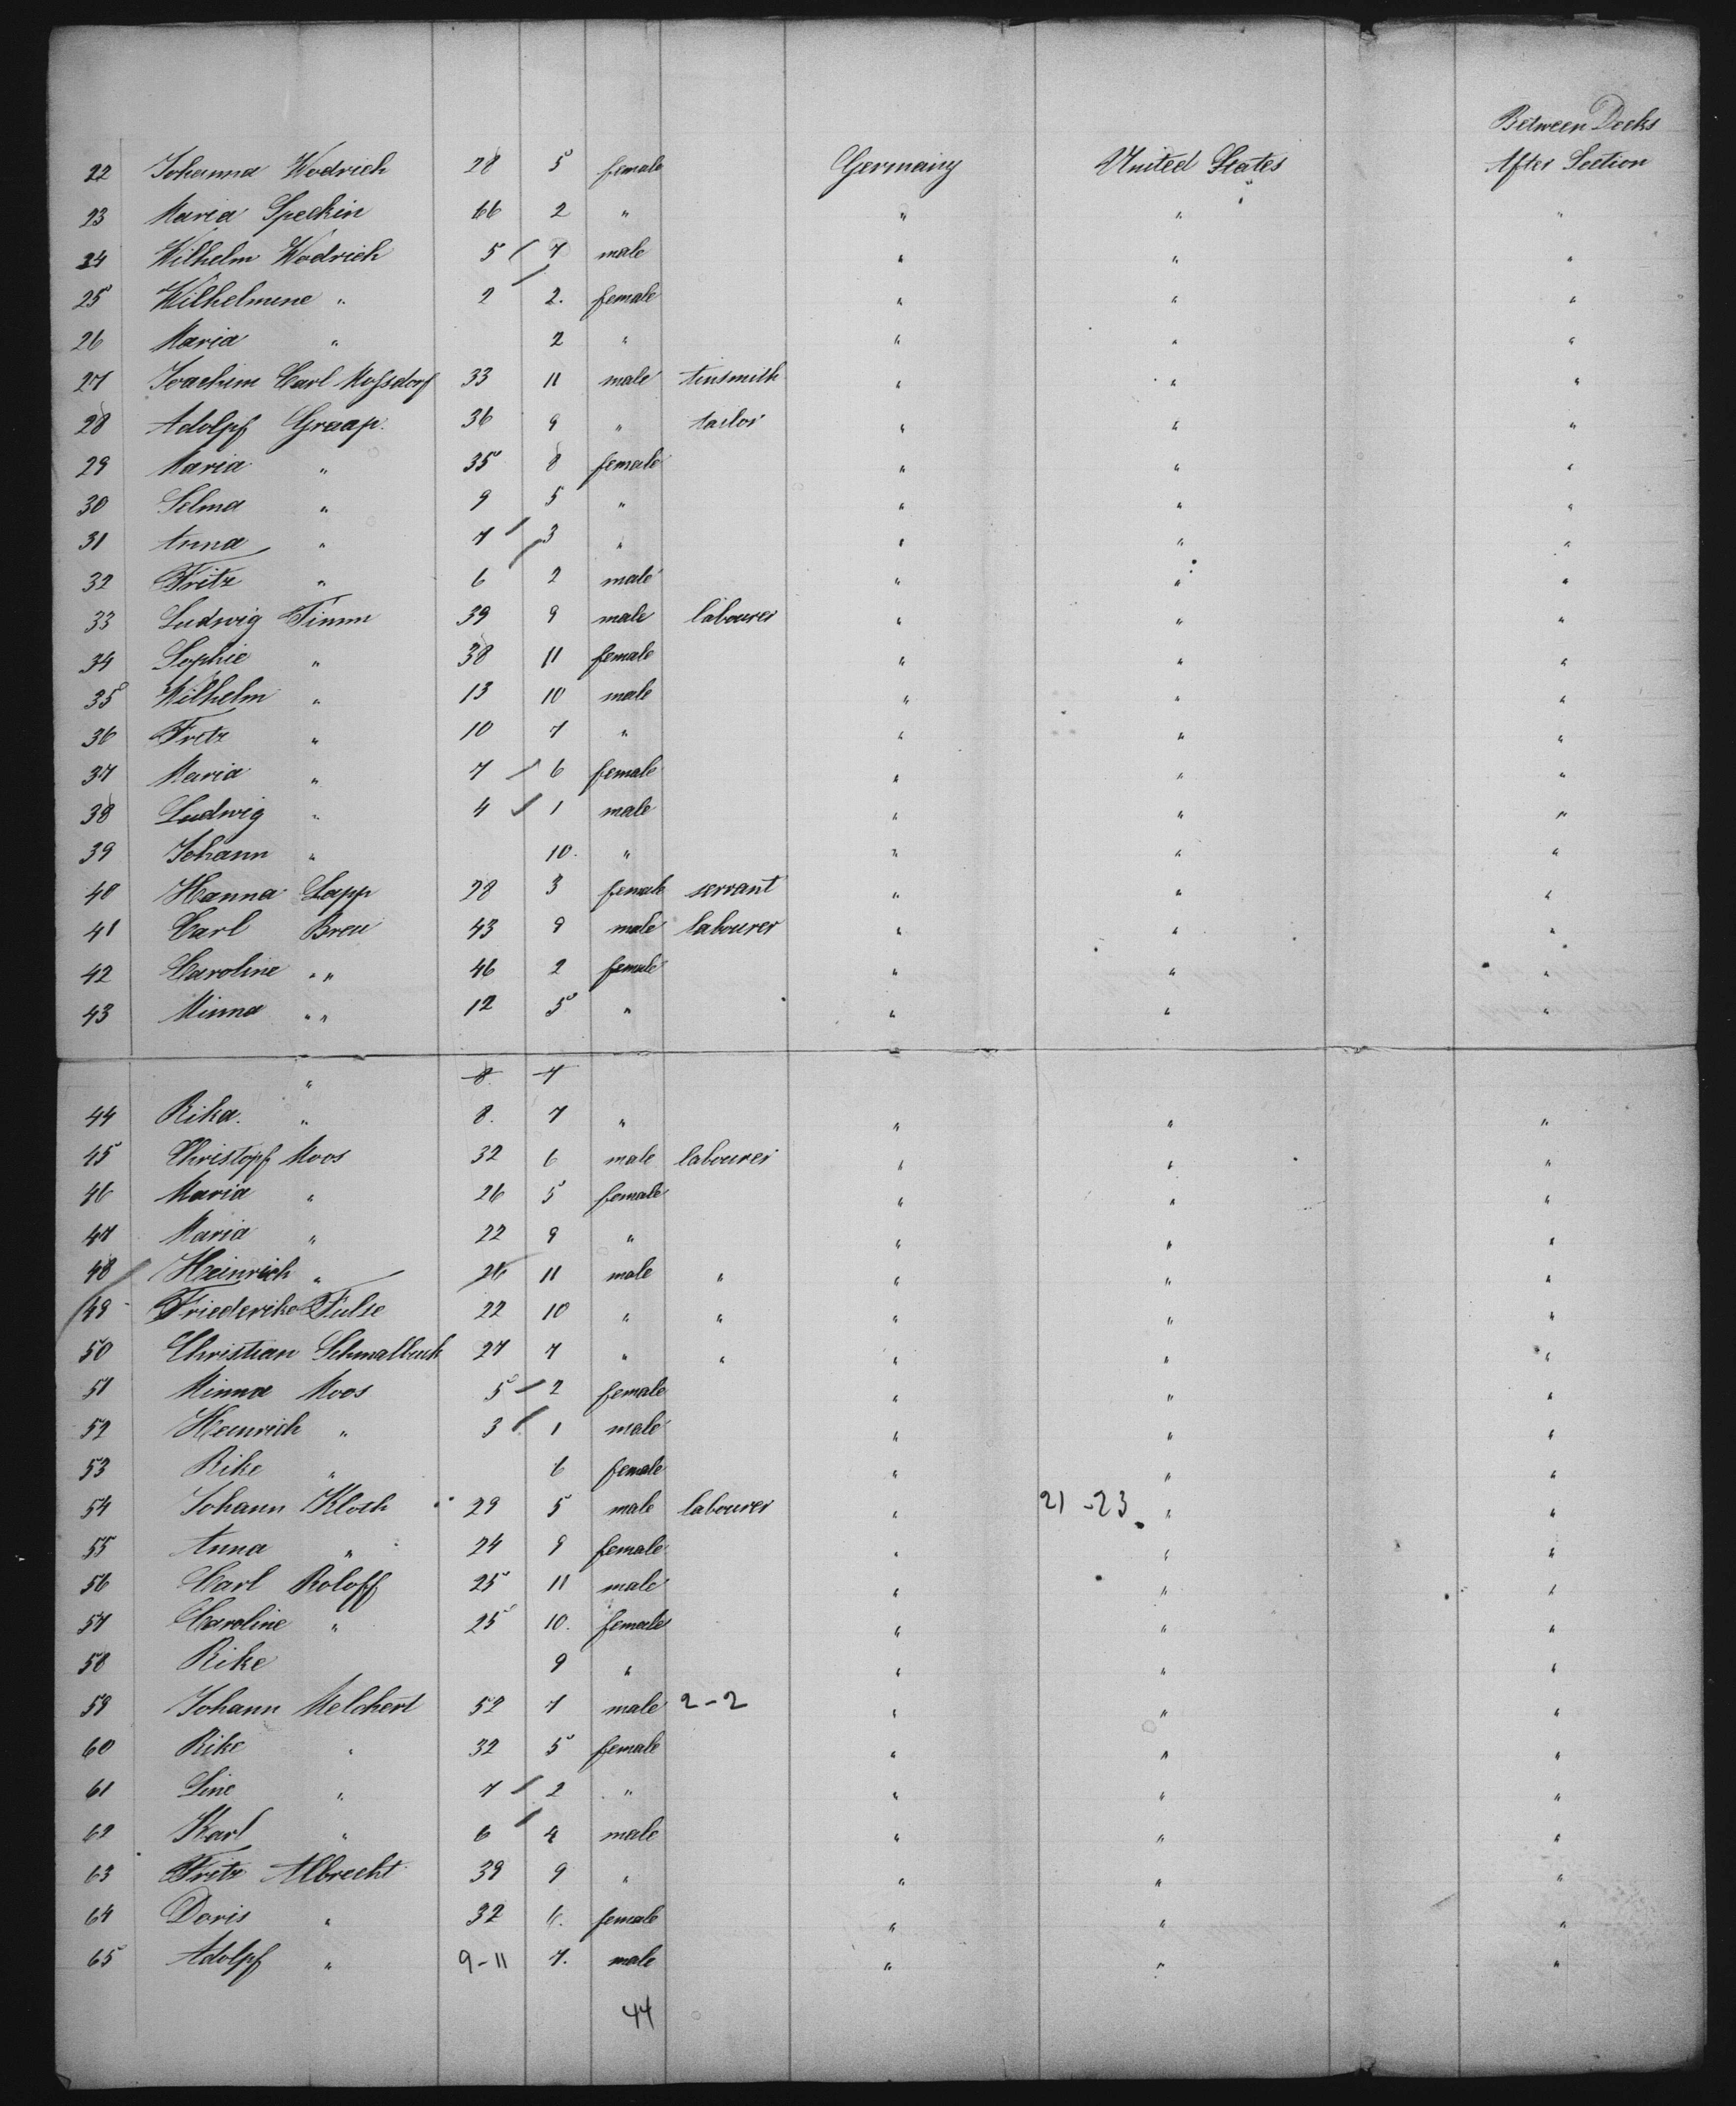 Between Decks
22 Johanna Wodrich 28 5 female Germany United States After Section
23 Maria Speckin 66 2 " " " "
24 Wilhelm Wodrich 5 / 7 male " " "
25 Wilhelmine " 2 / 2. female " " "
26 Maria " 2 " " " "
27 Joachim Carl Mossdorf 33 11 male tinsmith " " "
28 Adolpf Graap. 36 9 " tailor " " "
29 Maria " 35 8 female " " "
30 Selma " 9 5 " " " "
31 Anna " 7 / 3 " " " "
32 Fritz " 6 / 2 male " " "
33 Ludwig Timm 39 9 male labourer " " "
34 Sophie " 38 11 female " " "
35 Wilhelm " 13 10 male " " "
36 Fritz " 10 7 " " " "
37 Maria " 7 / 6 female " " "
38 Ludwig " 4 / 1 male " " "
39 Johann " 10. " " " "
40 Hanna Lapp 28 3 female servant " " "
41 Carl Breu 43 9 male labourer " " "
42 Caroline " " 46 2 female " " "
43 Minna " " 12 5 " " " "
" 8. 7 "
44 Rika. " 8. 7 " " " "
45 Christopf Moos 32 6 male labourer " " "
46 Maria " 26 5 female " " "
47 Maria " 22 9 " " " "
48 Heinrich " 26 11 male " " " "
49 Friederike Fulse 22 10 " " " " "
50 Christian Schmalbuck 27 7 " " " " "
51 Minna Moos 5 / 2 female " " "
52 Heinrich " 3 / 1 male " " "
53 Rike " 6 female " " "
54 Johann Kloth 29 5 male labourer " 21-23 " "
55 Anna " 24 9 female " " "
56 Carl Roloff 25 11 male " " "
57 Caroline " 25 10. female " " "
58 Rike 9 " " " "
59 Johann Melchert 52 7 male 2-2 " " "
60 Rike " 32 5 female " " "
61 Line " 7 / 2 " " " "
62 Karl " 6 / 4 male " " "
63 Fritz Albrecht 39 9 " " " "
64 Doris " 32 6. female " " "
65 Adolpf " 9-11 7. male " " "
44